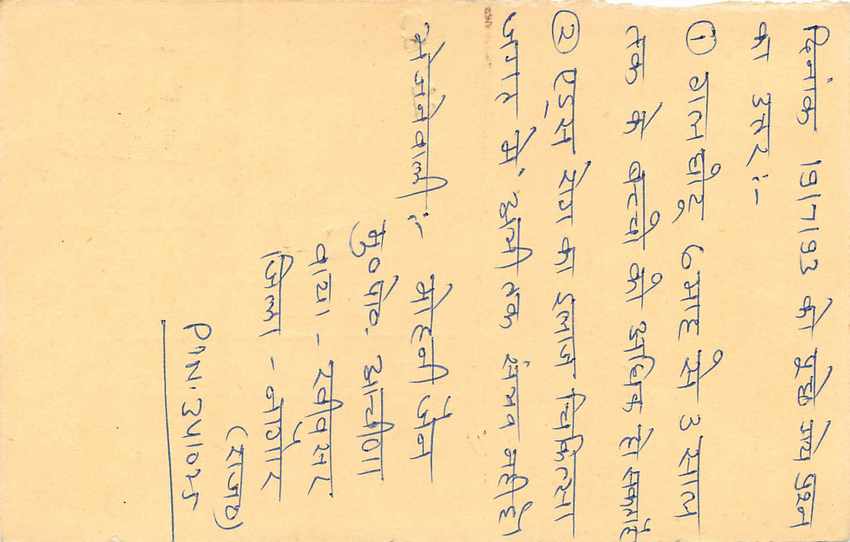 दिनांक 19/7/93 को पूछे गये प्रश्न
का उत्तर :-
① गाल घोटू 6 माह से 3 साल
तक के बच्चो को अधिक हो सकता है
② एड्स रोग का इलाज चिकित्सा
जगत में अभी तक संभव नही है।
भेजनेवाली :- मोहनी जैन
मु० पो०. आचीणा
वाया - खींवसर
जिला - नागौर
(राज०)
PIN. 341025